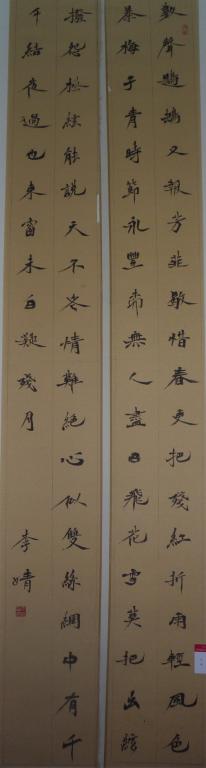 數聲鶗鴂又報芳菲歇惜春更把殘紅折雨輕風色
暴梅子青時節永豐柳無人盡日飛花雪莫把幺絃
撥怨極絃能說天不老情難絕心似雙絲網中有千
千結夜過也東窗未白凝殘月
李婧